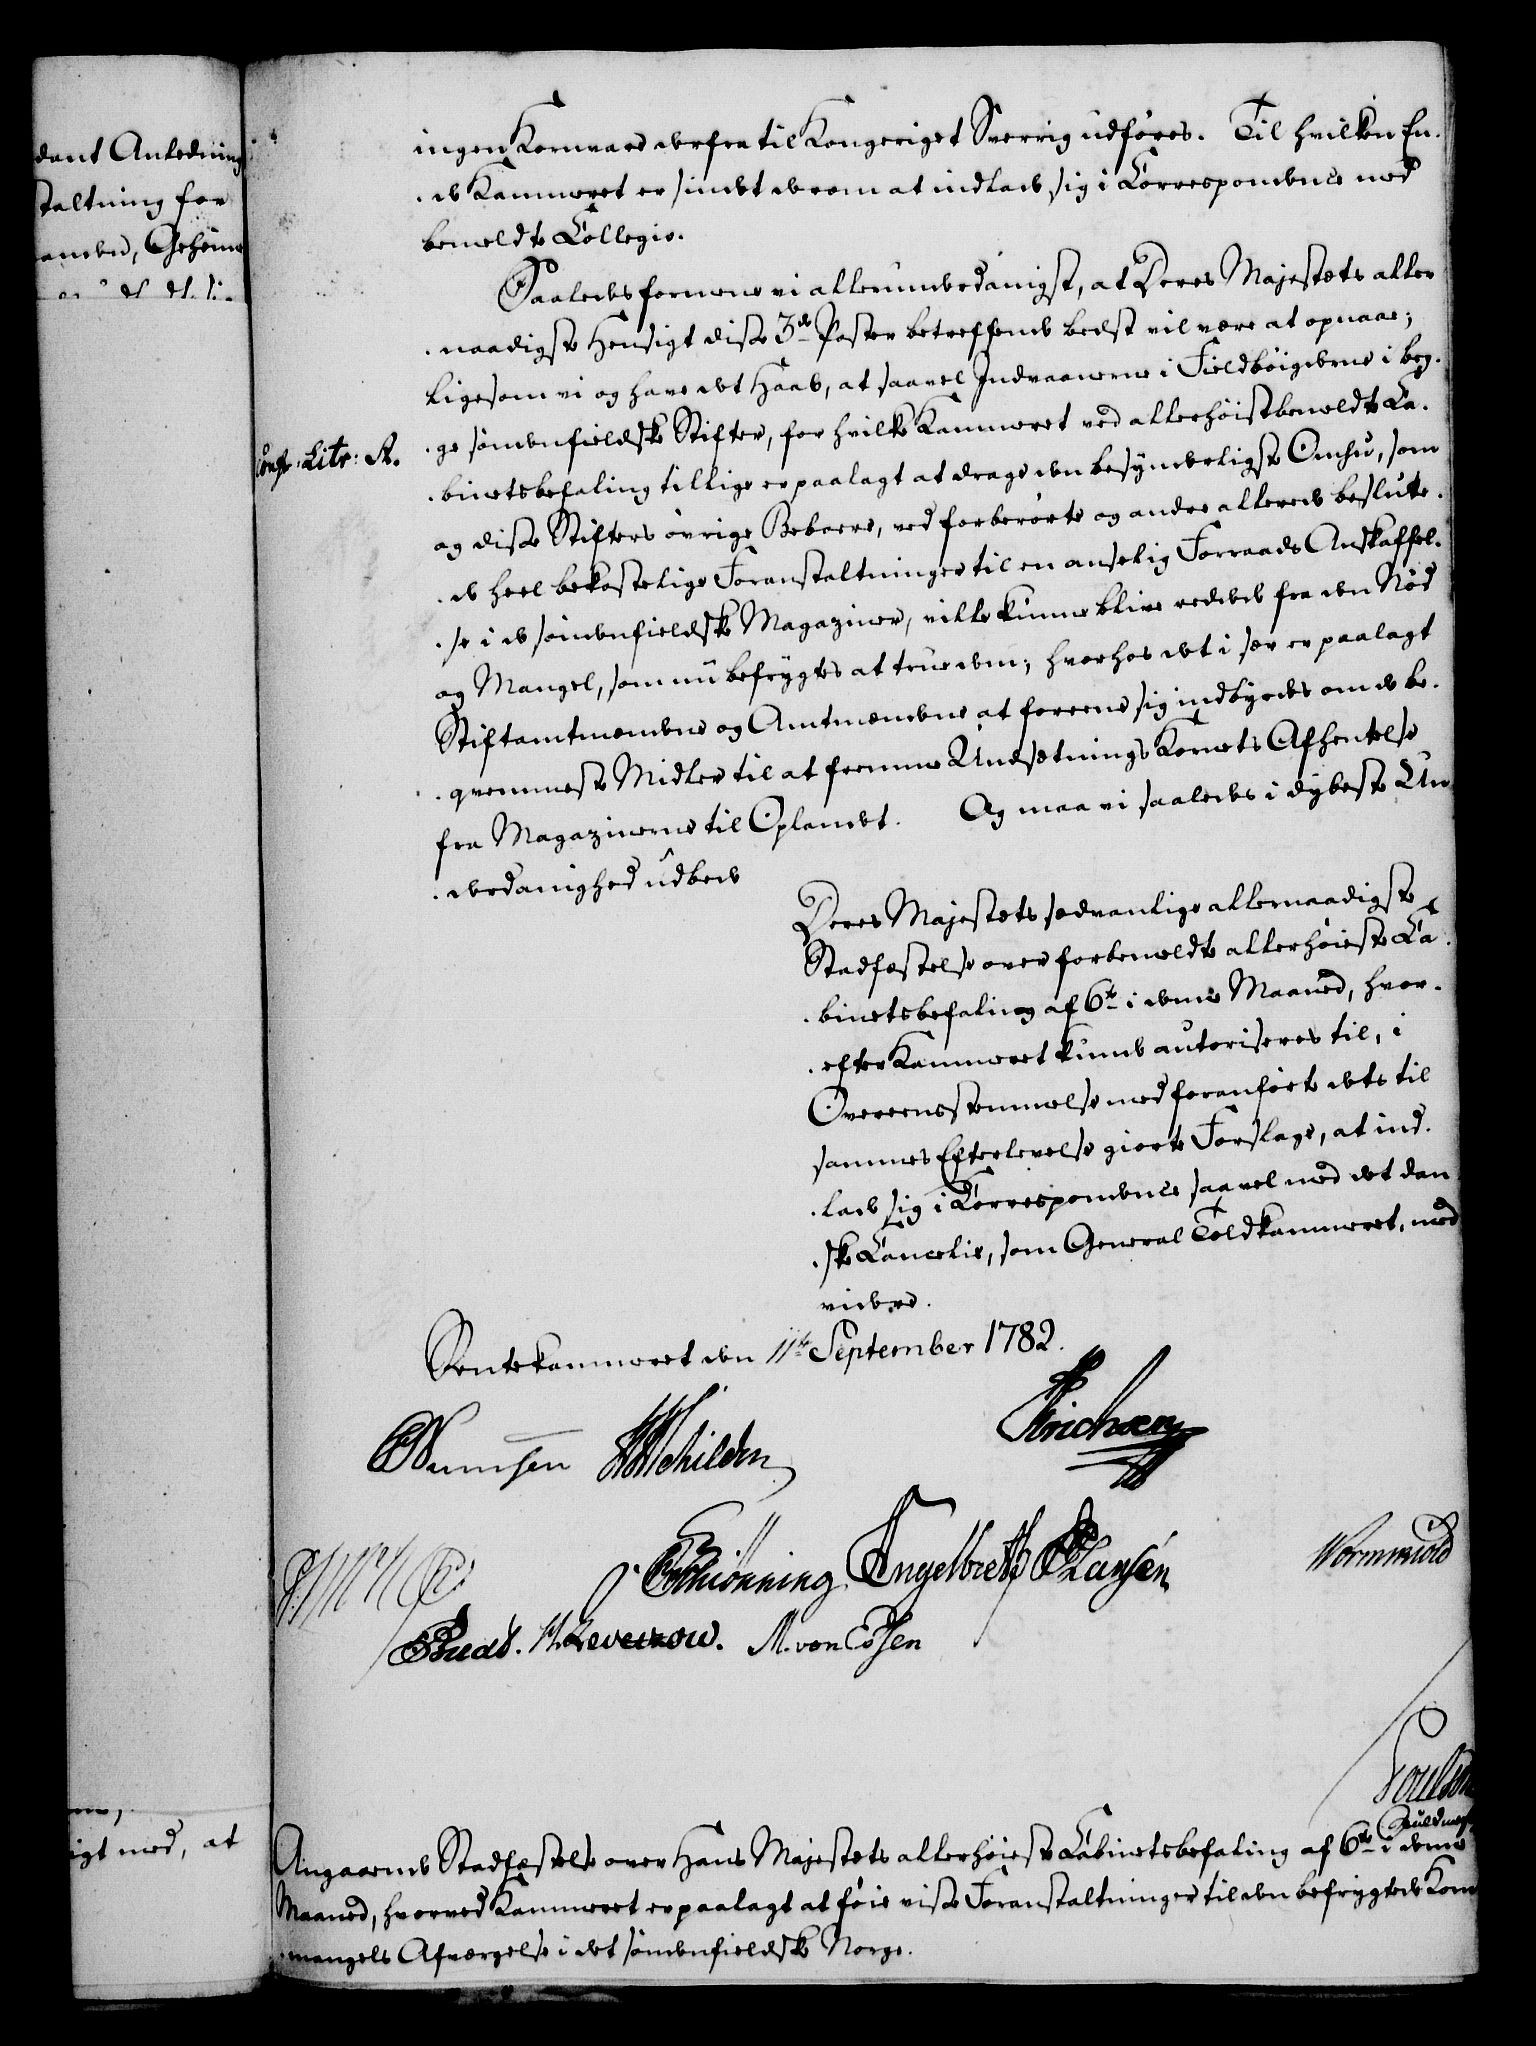 dant Anledning
taltning for
anden, Geheime
igt med, at
ingen Kornvare derfra til Kongeriget Sverrig udføres. Til hvilken En-
de Kammeret er sindet derom at indlade sig i Correspondence med
bemeldte Collegio.
Saaledes formene vi allerunderdanigst, at Deres Majestets aller-
naadigste Hensigt disse 3de Poster betreffende bedst vil være at opnaae;
ligesom vi og have det Haab, at saavel Indvaanerne i Fieldbøigderne i beg-
ge søndenfieldske Stifter, for hvilke Kammeret ved allerhøistbemeldte Ca-
Confr: Litr: A.
binetsbefaling tillige er paalagt at drage den besynderligste Omhue, som
og disse Stifters øvrige Beboere, ved forberørte og andre allerede beslutte-
de heel bekostelige Foranstaltninger til en anselig Forraads Anskaffel-
se i de søndenfieldske Magaziner, ville kunne blive reddede fra den Nød
og Mangel, som nu befrygtes at true dem; hvorhos det i sær er paalagt
Stiftamtmændene og Amtmændene at foreene sig indbyrdes om de be-
qvemmeste Midler til at fremme Undsætnings Kornets Afhentelse
fra Magazinerne til Oplandet. Og maa vi saaledes i dybeste Un-
derdanighed udbede
Deres Majestets sædvanlige allernaadigste
Stadfæstelse over forbemeldte allerhøieste Ca-
binetsbefaling af 6te i denne Maaned, hvor-
efter Kammeret kunde autoriseres til, i
Overeensstemmelse med foranførte dets til
sammes Efterlevelse giorte Forslage, at ind-
lade sig i Correspondence saavel med det dan-
ske Cancelie, som General Toldkammeret, med
videre.
Rentekammeret den 11te September 1782.
Schilden
Erichsen
Schiønning Engelbreth Hansen
Wormskiold
Levetzow. M. von Essen
Poulsen
Angaaende Stadfæstelse over Hans Majestets allerhøieste Cabinetsbefaling af 6te i denne
Maaned, hvorved Kammeret er paalagt at føie visse Foranstaltninger til den befrygtede Korn-
mangels Afværgelse i det søndenfieldske Norge.